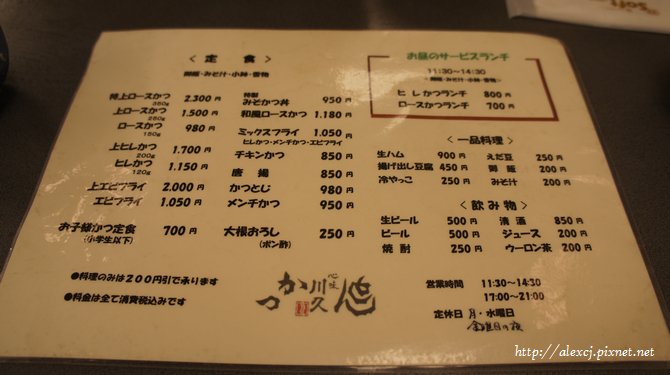 Soft
＜定食＞
御飯・みそ汁・小鉢・香物
特上ロースかつ 350g 2.300円
上ロースかつ 250g 1.500円
ロースかつ 150g 980円
上ヒレかつ 200g 1.700円
ヒレかつ 120g 1.150円
上エビフライ 2.000円
エビフライ 1.050円
お子様かつ定食 700円
（小学生以下）
特製
みそかつ丼 950円
和風ロースかつ 1.180円
ミックスフライ 1.050円
ヒレかつ・メンチかつ・エビフライ
チキンかつ 850円
唐揚 850円
かつとじ 980円
メンチかつ 950円
大根おろし 250円
（ポン酢）
●料理のみは２００円引で承ります
●料金は全て消費税込みです
お昼のサービスランチ
11:30～14:30
御飯・みそ汁・小鉢・香物
ヒレかつランチ 800円
ロースかつランチ 700円
＜一品料理＞
生ハム 900円 えだ豆 250円
揚げ出し豆腐 450円 御飯 200円
冷やっこ 250円 みそ汁 200円
＜飲み物＞
生ビール 500円 清酒 850円
ビール 500円 ジュース 200円
焼酎 250円 ウーロン茶 200円
かつ
川久
営業時間 11:30～14:30
17:00～21:00
定休日 月・水曜日
http://alexcj.pixnet.net